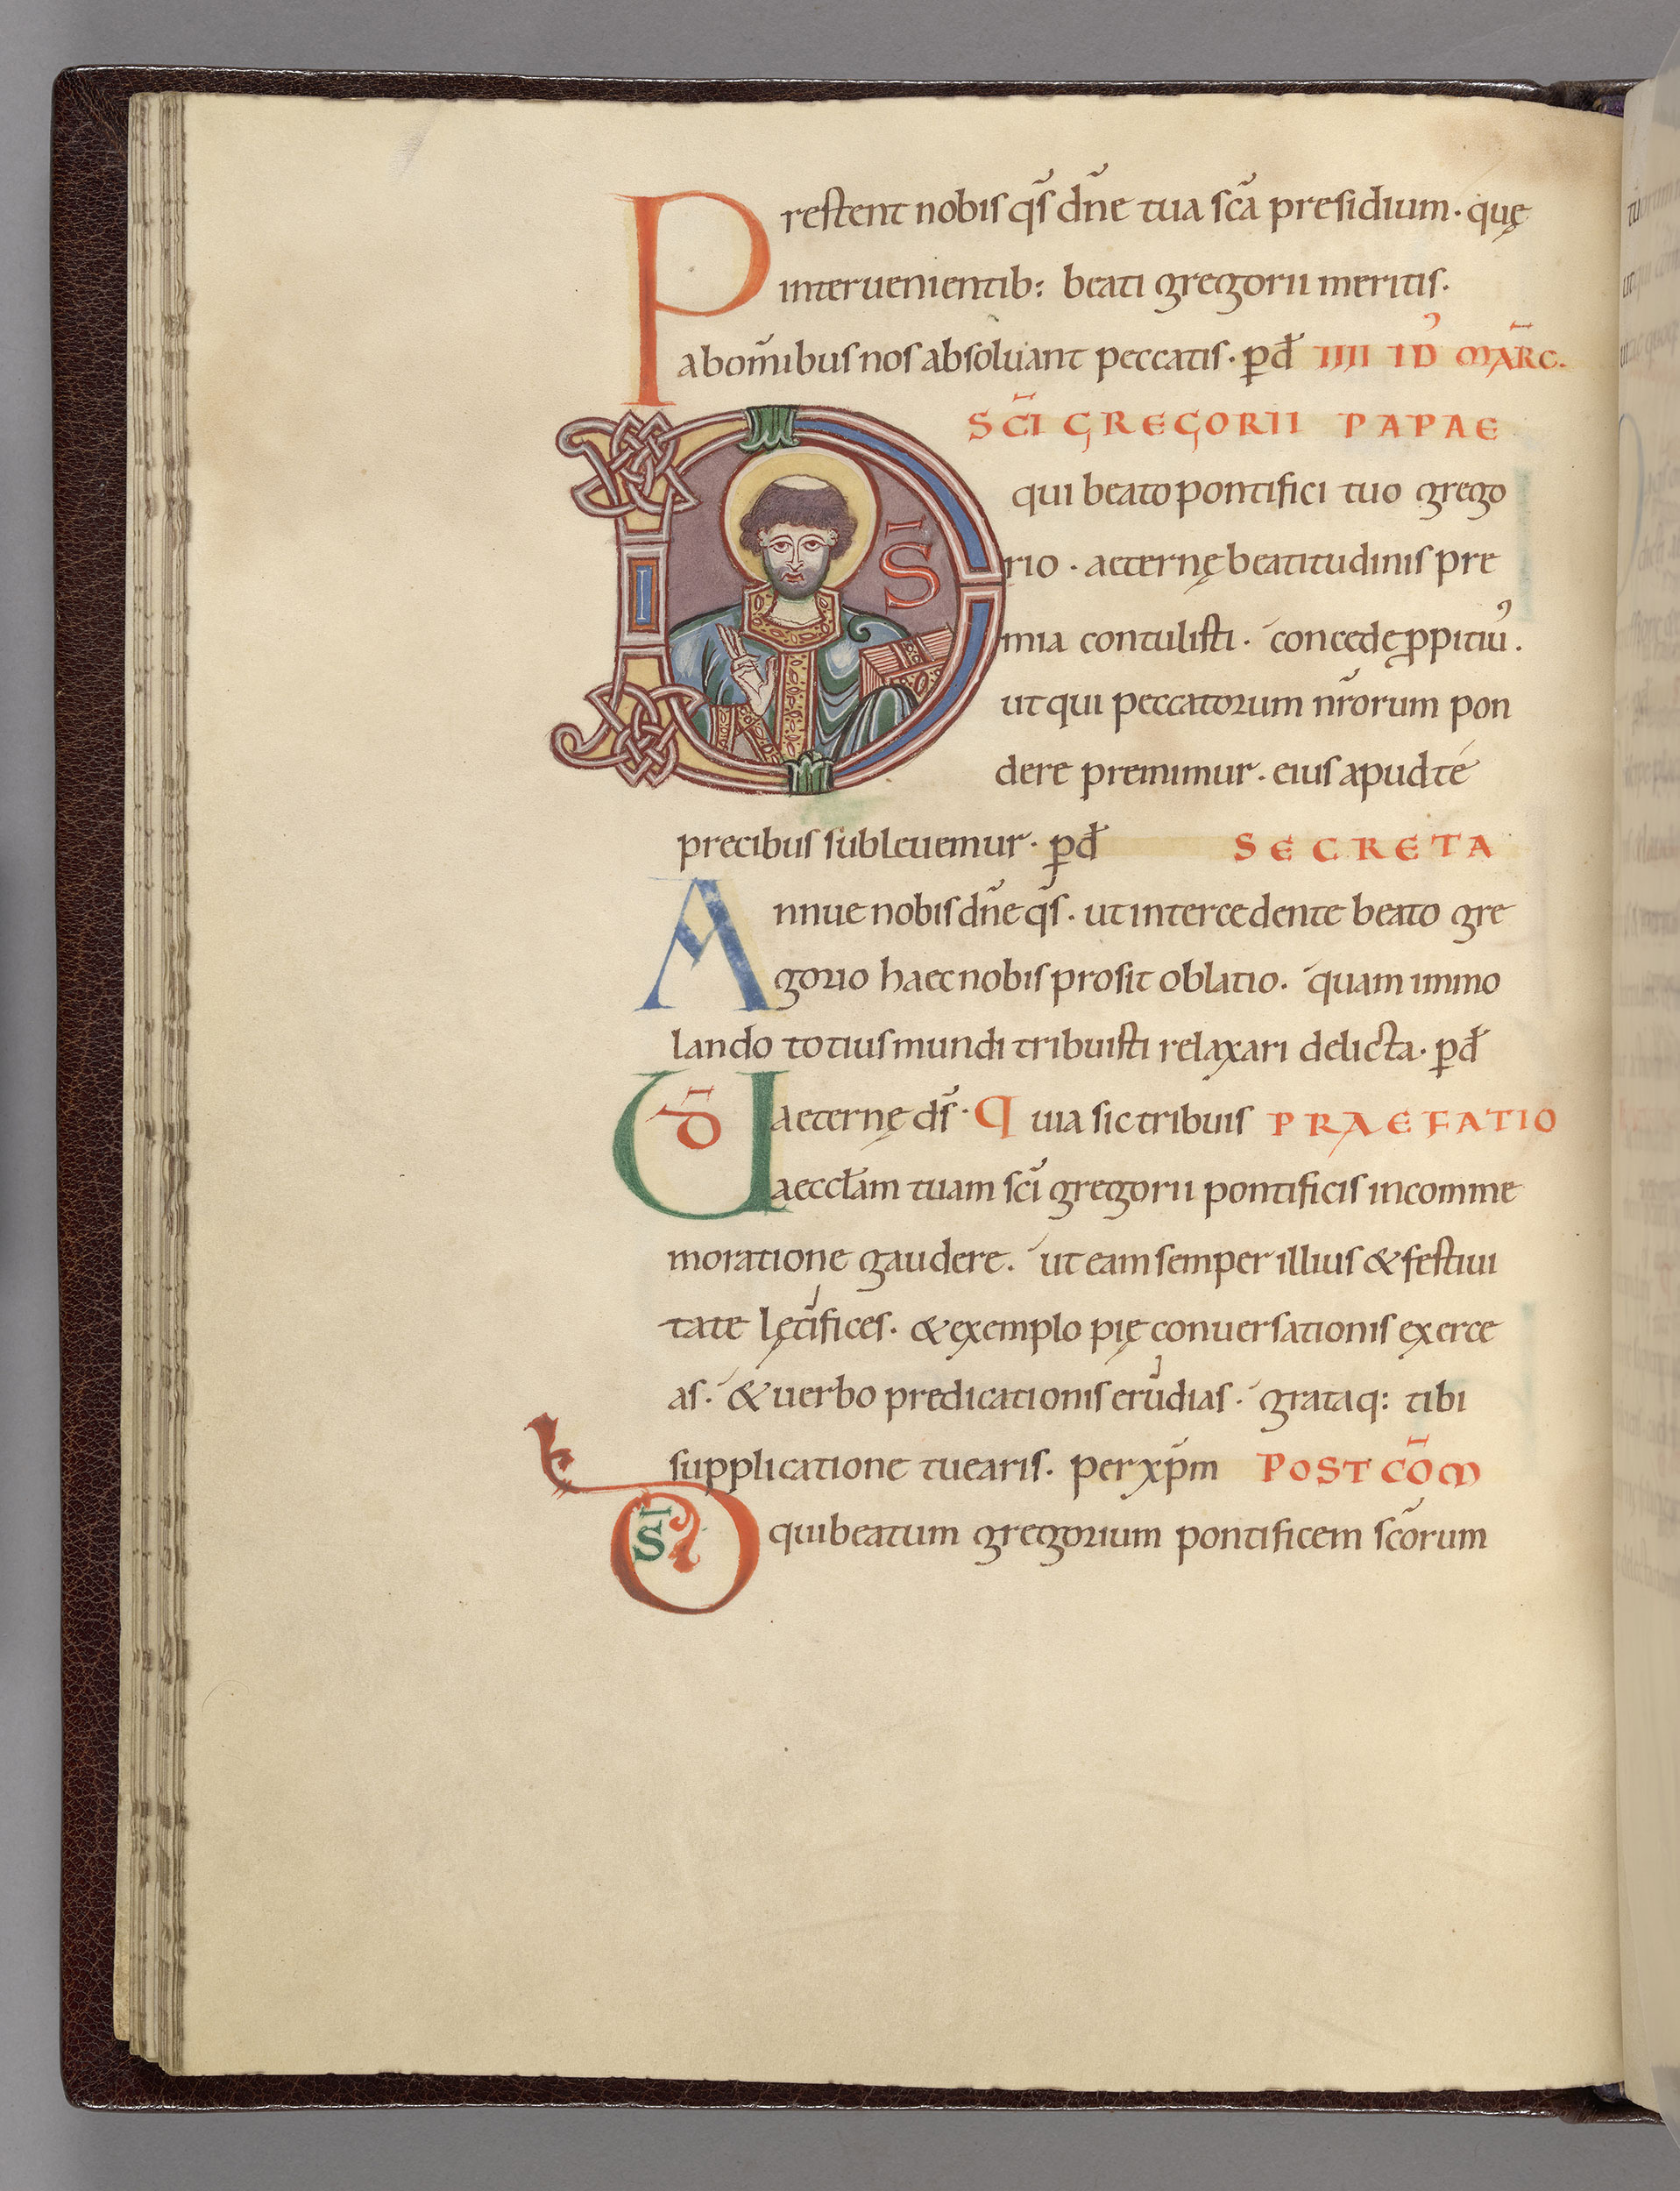 Prestent nobis qs̄ dn̄e tua sc̄a presidium. quę
interuenientib: beati gregorii meritis.
abom̄ibus nos absoluant peccatis. p̲d̄ IIII ID’ MAR̄C.
SC̄I GREGORII PAPAE
D S̄ qui beato pontifici tuo grego
rio. aeternę beatitudinis pre
mia contulisti. concede ꝓpitiu᾽.
ut qui peccatorum nr̄orum pon
dere premimur. eius apud té
precibus subleuemur. p̲d̄ SECRETA
Annue nobis dn̄e qs̄. ut intercedente beato gre
gorio haec nobis prosit oblatio. quam immo
lando totius mundi tribuisti relaxari delicta. p̲d̄
UD̄ aeternę ds̄. Quia sic tribuis PRAEFATIO
aeccl̄am tuam sc̄i gregorii pontificis in comme
moratione gaudere. ut eam semper illius & festiui
tate lętifices. & exemplo pię conuersationis exerce
as. & uerbo predicationis erudias. grataq: tibi
supplicatione tuearis. per xp̄m POST CO̅M
DS̄ qui beatum gregorium pontificem sc̄orum